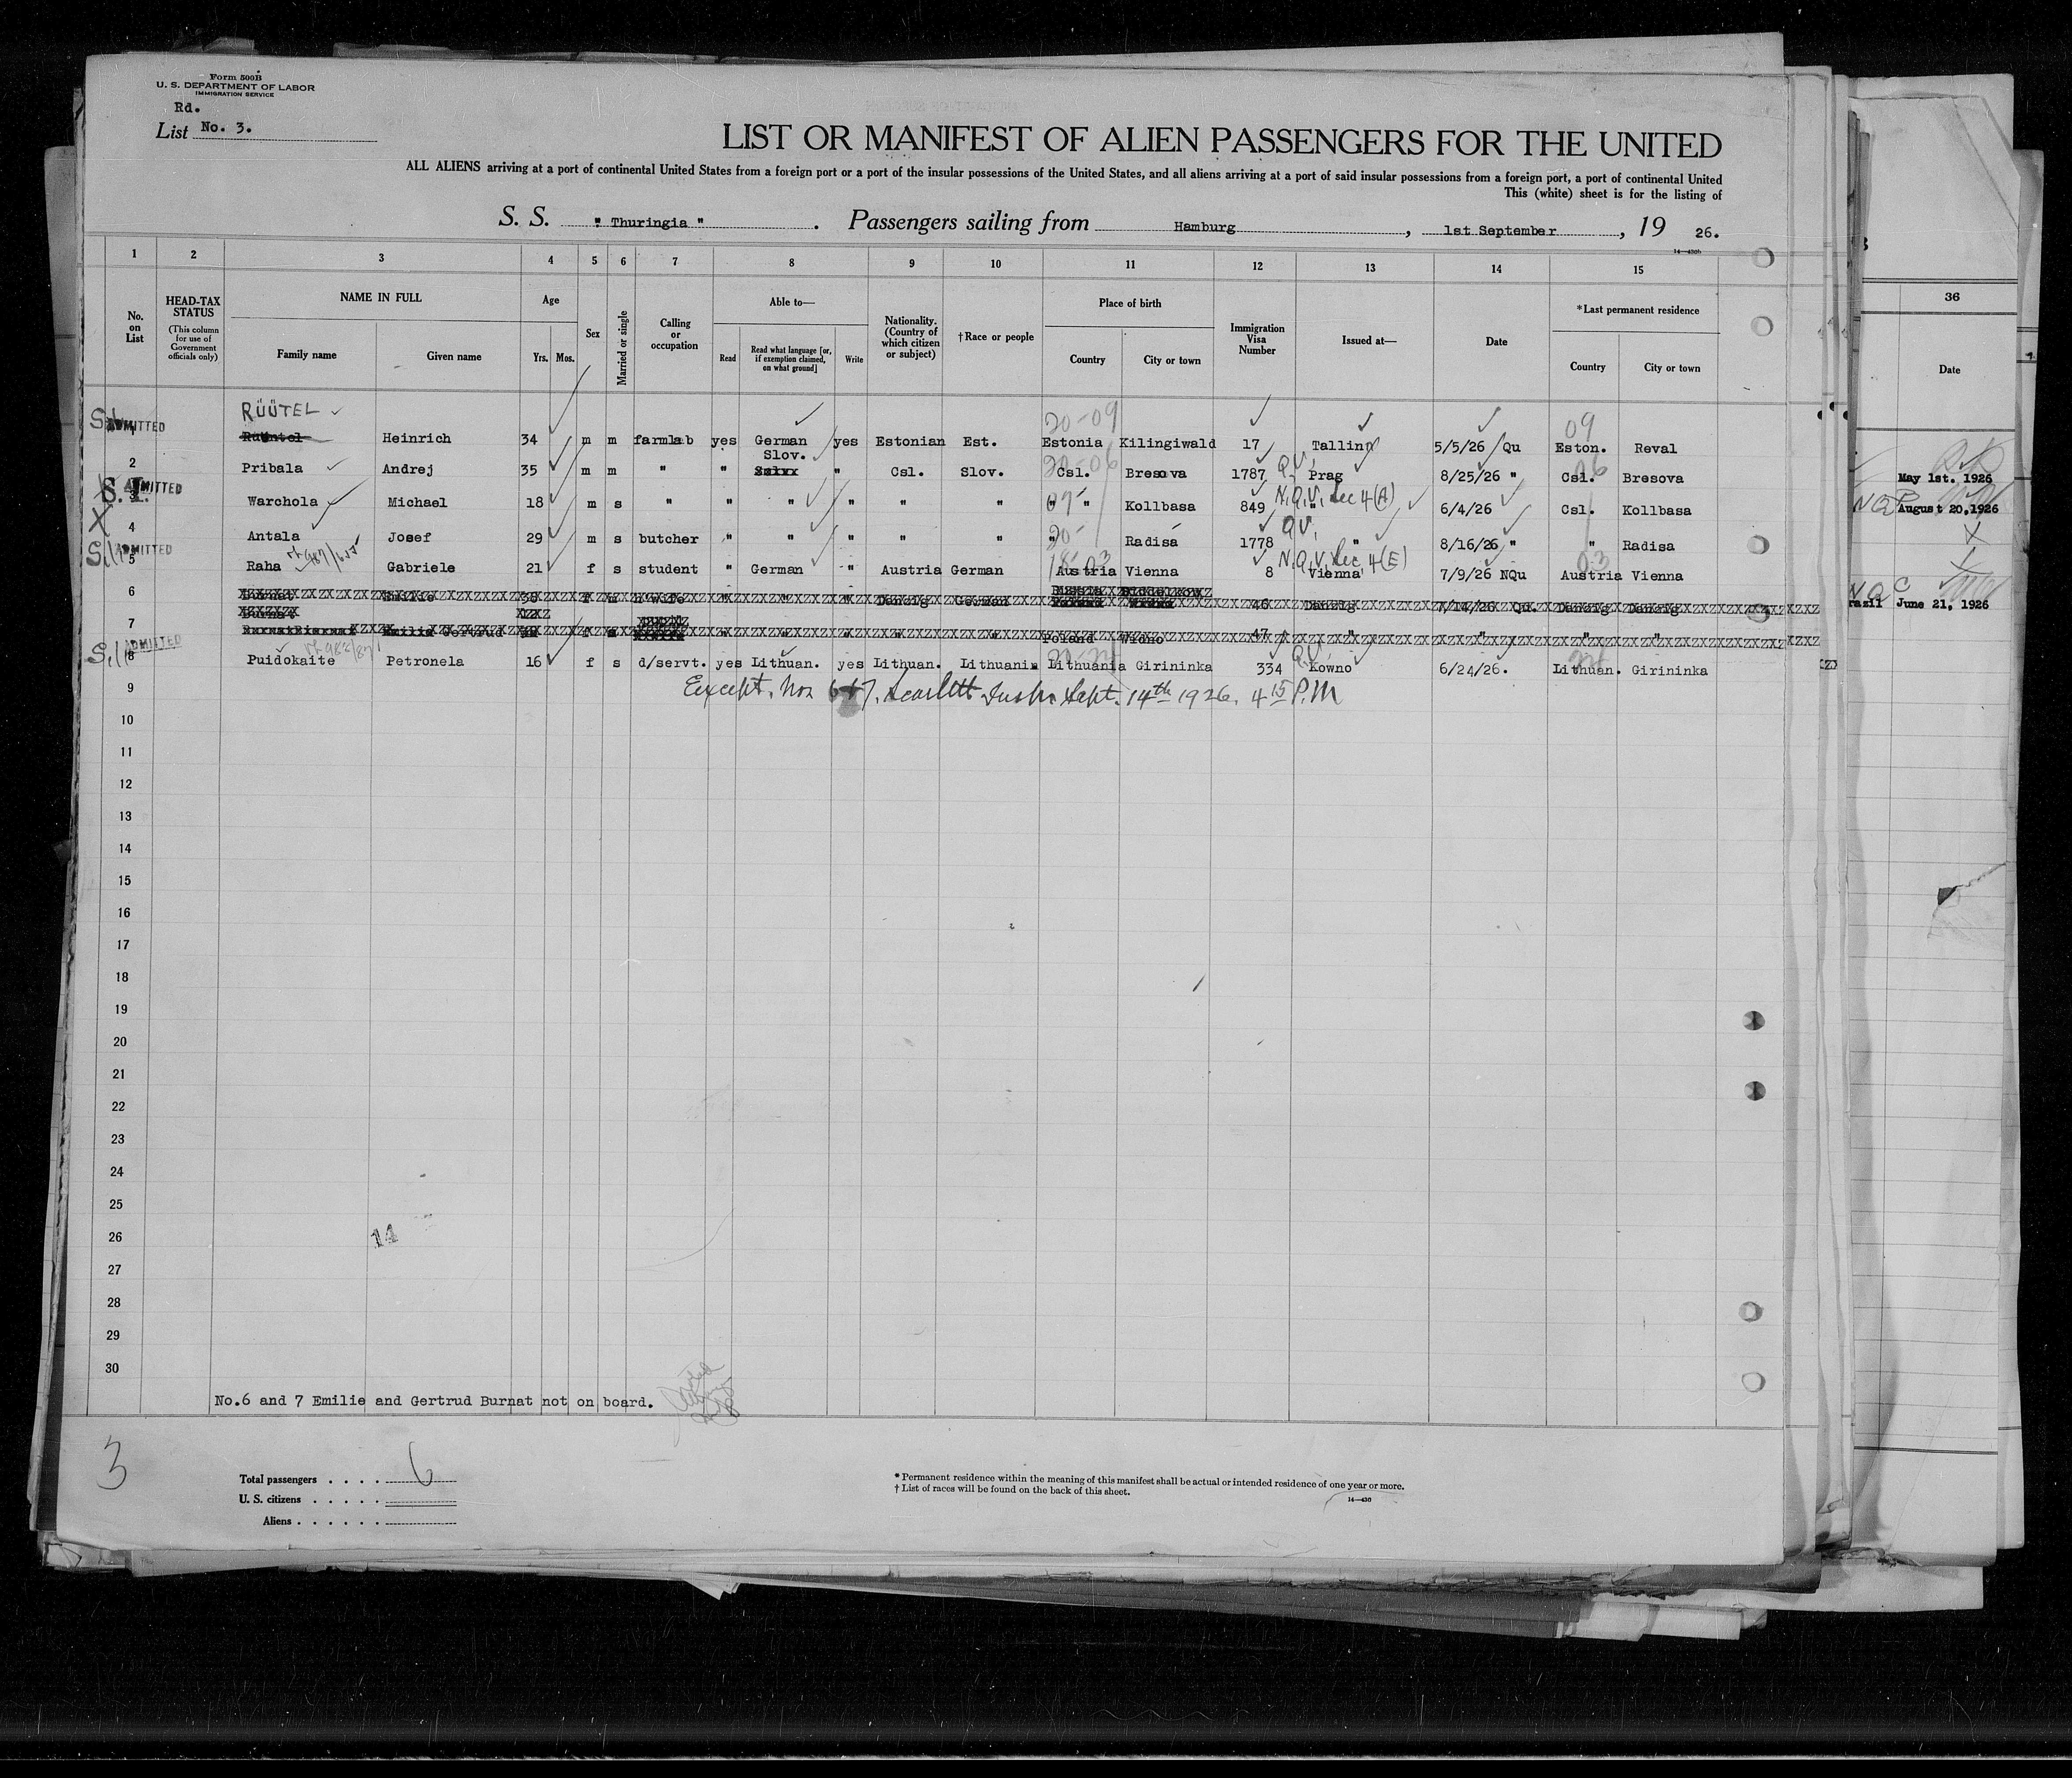 Form 500B
U. S. DEPARTMENT OF LABOR
IMMIGRATION SERVICE
Rd.
List No. 3.
LIST OR MANIFEST OF ALIEN PASSENGERS FOR THE UNITED
ALL ALIENS arriving at a port of continental United States from a foreign port or a port of the insular possessions of the United States, and all aliens arriving at a port of said insular possessions from a foreign port, a port of continental United
This (white) sheet is for the listing of
S. S. " Thuringia " . Passengers sailing from Hamburg , 1st September , 19 26.
14—430b
1 2 3 4 5 6 7 8 9 10 11 12 13 14 15
No. on List
HEAD-TAX STATUS (This column for use of Government officials only)
NAME IN FULL Family name Given name
Age Yrs. Mos.
Sex
Married or single
Calling or occupation
Able to— Read Read what language [or, if exemption claimed, on what ground] Write
Nationality. (Country of which citizen or subject)
†Race or people
Place of birth Country City or town
Immigration Visa Number
Issued at—
Date
*Last permanent residence Country City or town
36
Date
RÜÜTEL 20-09 09
ADMITTED Heinrich 34 m m farmlab yes German yes Estonian Est. Estonia Kilingiwald 17 Tallinn 5/5/26 Qu Eston. Reval
2 Pribala Andrej 35 m m " " Slov. " Csl. Slov. Csl. Bresova 1787 Q.V. Prag 8/25/26 " Csl. Bresova May 1st. 1926
S.I. ADMITTED 3 Warchola Michael 18 m s " " " " " " " " Kollbasa 849 N.Q.V. Sec 4(A) " 6/4/26 Csl. Kollbasa August 20,1926
X 4 Antala Josef 29 m s butcher " " " " " " Radisá 1778 Q.V. " 8/16/26 " " Radisa
ADMITTED 5 Raha Gabriele 21 f s student " German " Austria German Austria Vienna 8 N.Q.V. Sec. 4(E) Vienna 7/9/26 NQu Austria Vienna
6 Burnat Emilie f m H'wife " " " Danzig German Russia 46 Danzig 7/14/26 Qu. Danzig Danzig June 21, 1926
7 Burnat Gertrud f s " " " " " Poland Widno 47 " " " "
ADMITTED 8 Puidokaite Petronela 16 f s d/servt. yes Lithuan. yes Lithuan. Lithuanin Lithuania Girininka 334 Q.V. Kowno 6/24/26. Lithuan. Girininka
9 Except. Nos 6+7. Scarlett Insptr. Sept. 14th 1926. 4 15 P.M
10
11
12
13
14
15
16
17
18
19
20
21
22
23
24
25
26
14
27
28
29
30
No.6 and 7 Emilie and Gertrud Burnat not on board.
3
Total passengers . . . . 6
U. S. citizens . . . . .
Aliens . . . . . .
* Permanent residence within the meaning of this manifest shall be actual or intended residence of one year or more.
† List of races will be found on the back of this sheet.
14—430